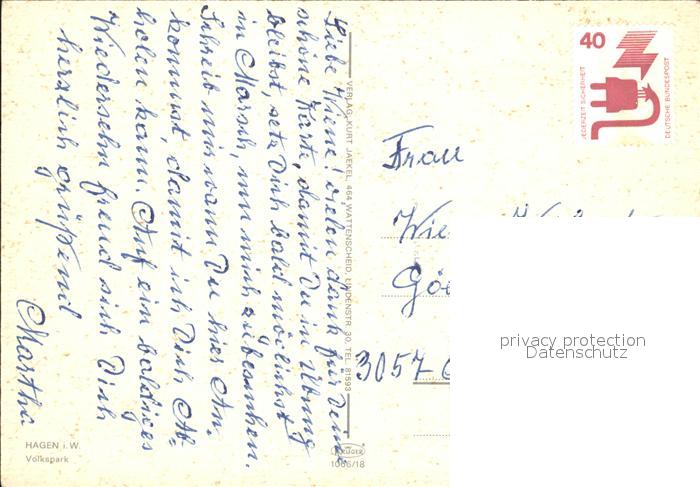 Liebe Wiene! vielen dank für Deine
schöne Karte, damit Du in Übung
bleibst, setz Dich bald möglichst
in Marsch, um mich zu besuchen.
Schreib mir wann Du hier An-
kommst, damit ich Dich Ab-
holen kann. Auf ein baldiges
Wiedersehn freud sich Dich
herzlich grüßend
Martha
HAGEN i. W.
Volkspark
VERLAG KURT JAEKEL, 464 WATTENSCHEID, LINDENSTR. 30, TEL. 81593
KRÜGER
1086/18
40
JEDERZEIT SICHERHEIT
DEUTSCHE BUNDESPOST
Frau
Wie
Gö
3057
privacy protection
Datenschutz